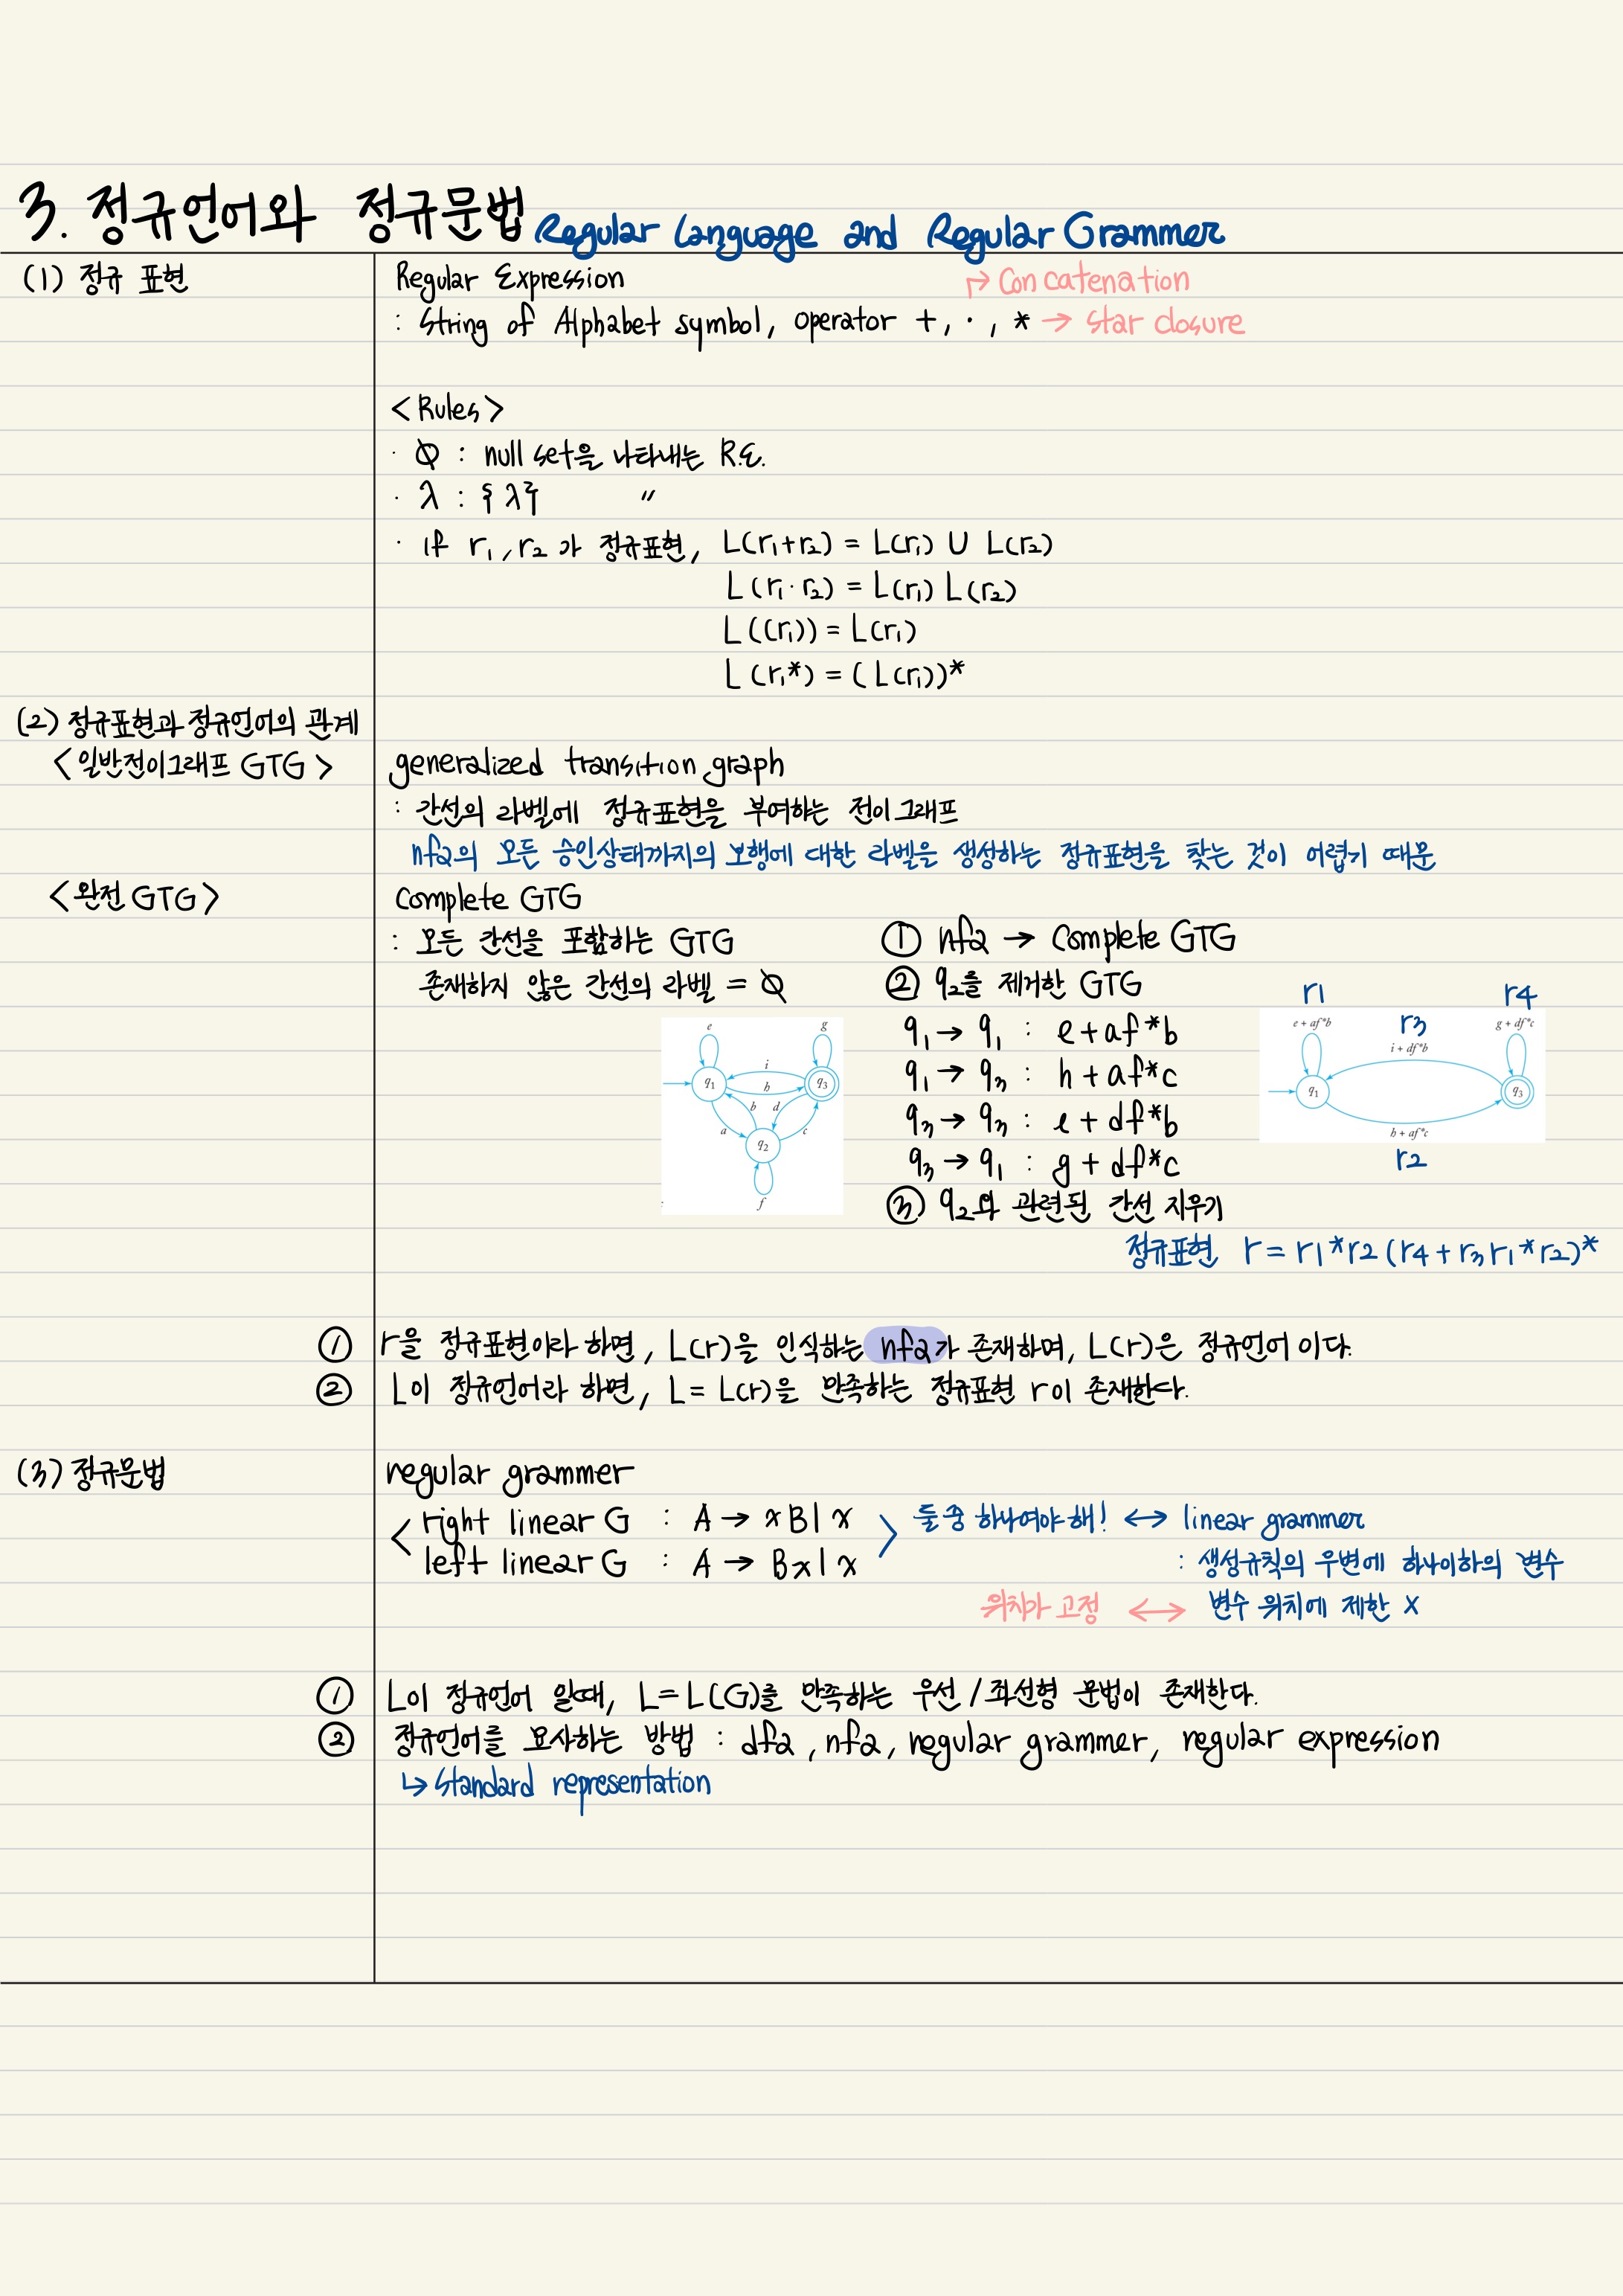 3. 정규언어와 정규문법 Regular Language and Regular Grammer
(1) 정규 표현
Regular Expression
→ Concatenation
: String of Alphabet symbol, operator +, ·, * → star closure
<Rules>
· Ø : null set을 나타내는 R.E.
· λ : {λ} 〃
· if r₁, r₂ 가 정규표현, L(r₁+r₂) = L(r₁) ∪ L(r₂)
L(r₁·r₂) = L(r₁) L(r₂)
L((r₁)) = L(r₁)
L(r₁*) = (L(r₁))*
(2) 정규표현과 정규언어의 관계
<일반전이그래프 GTG>
generalized transition graph
: 간선의 라벨에 정규표현을 부여하는 전이그래프
nfa의 모든 승인상태까지의 보행에 대한 라벨을 생성하는 정규표현을 찾는 것이 어렵기 때문
<완전 GTG>
Complete GTG
: 모든 간선을 포함하는 GTG
존재하지 않은 간선의 라벨 = Ø
e
g
i
q₁
h
q₃
b
d
a
c
q₂
f
① nfa → Complete GTG
② q₂를 제거한 GTG
q₁ → q₁ : e + af*b
q₁ → q₃ : h + af*c
q₃ → q₃ : e + df*b
q₃ → q₁ : g + df*c
③ q₂와 관련된 간선 지우기
r1
r4
e + af*b
r3
g + df*c
i + df*b
q₁
q₃
h + af*c
r2
정규표현 r = r1*r2(r4+r3r1*r2)*
① r을 정규표현이라 하면, L(r)을 인식하는 nfa가 존재하며, L(r)은 정규언어 이다.
② L이 정규언어라 하면, L = L(r)을 만족하는 정규표현 r이 존재한다.
(3) 정규문법
regular grammer
< right linear G : A → xB | x > 둘 중 하나여야 해! ↔ linear grammer
left linear G : A → Bx | x
: 생성규칙의 우변에 하나이하의 변수
위치가 고정 ↔ 변수 위치에 제한 x
① L이 정규언어 일때, L=L(G)를 만족하는 우선/좌선형 문법이 존재한다.
② 정규언어를 묘사하는 방법 : dfa, nfa, regular grammer, regular expression
↳ Standard representation